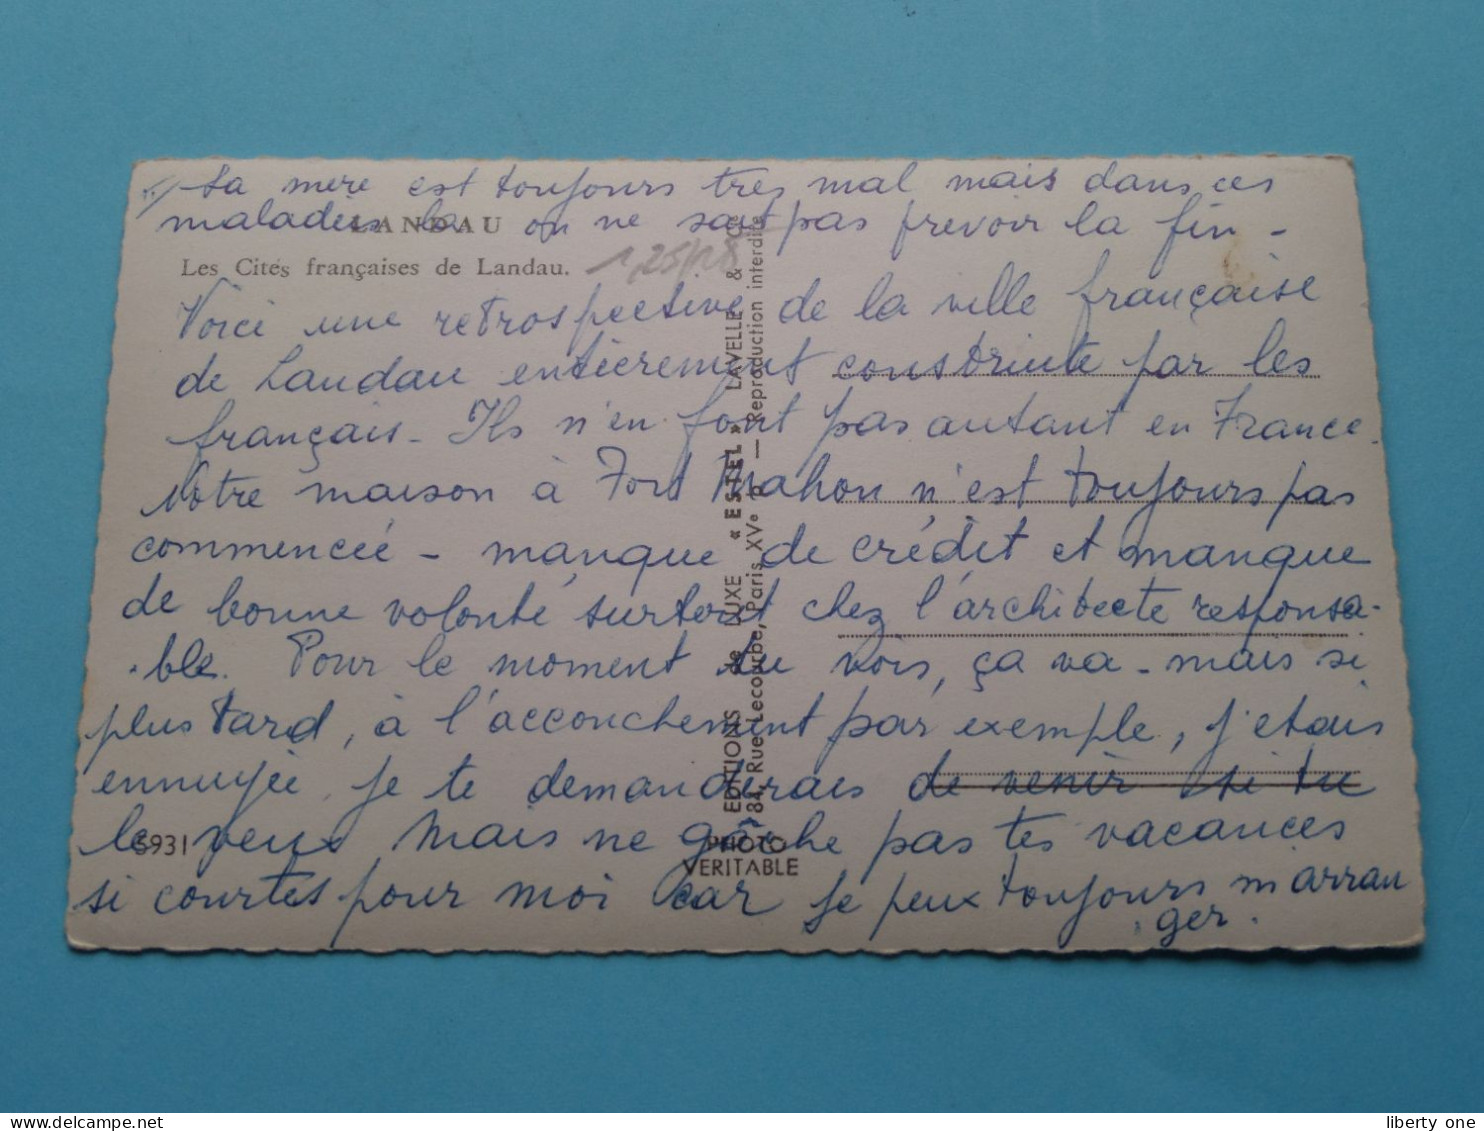 Sa mère est toujours très mal mais dans ces
maladies là on ne sait pas prévoir la fin -
LANDAU
Les Cités françaises de Landau.
1,25/18
Voici une rétrospective de la ville française
de Landau entièrement construite par les
français - Ils n'en font pas autant en France.
Notre maison à Fort Mahon n'est toujours pas
commencée - manque de crédit et manque
de bonne volonté surtout chez l'architecte responsa-
-ble. Pour le moment tu vois, ça va - mais si
plus tard, à l'accouchement par exemple, j'étais
ennuyée je te demanderais de venir si tu
le veux Mais ne gâche pas tes vacances
si courtes pour moi car je peux toujours m'arran
ger.
5931
EDITIONS de LUXE « ESTEL » LAVELLE & Cie
84, Rue Lecourbe, Paris XVe — Reproduction interdite
PHOTO
VERITABLE
liberty one